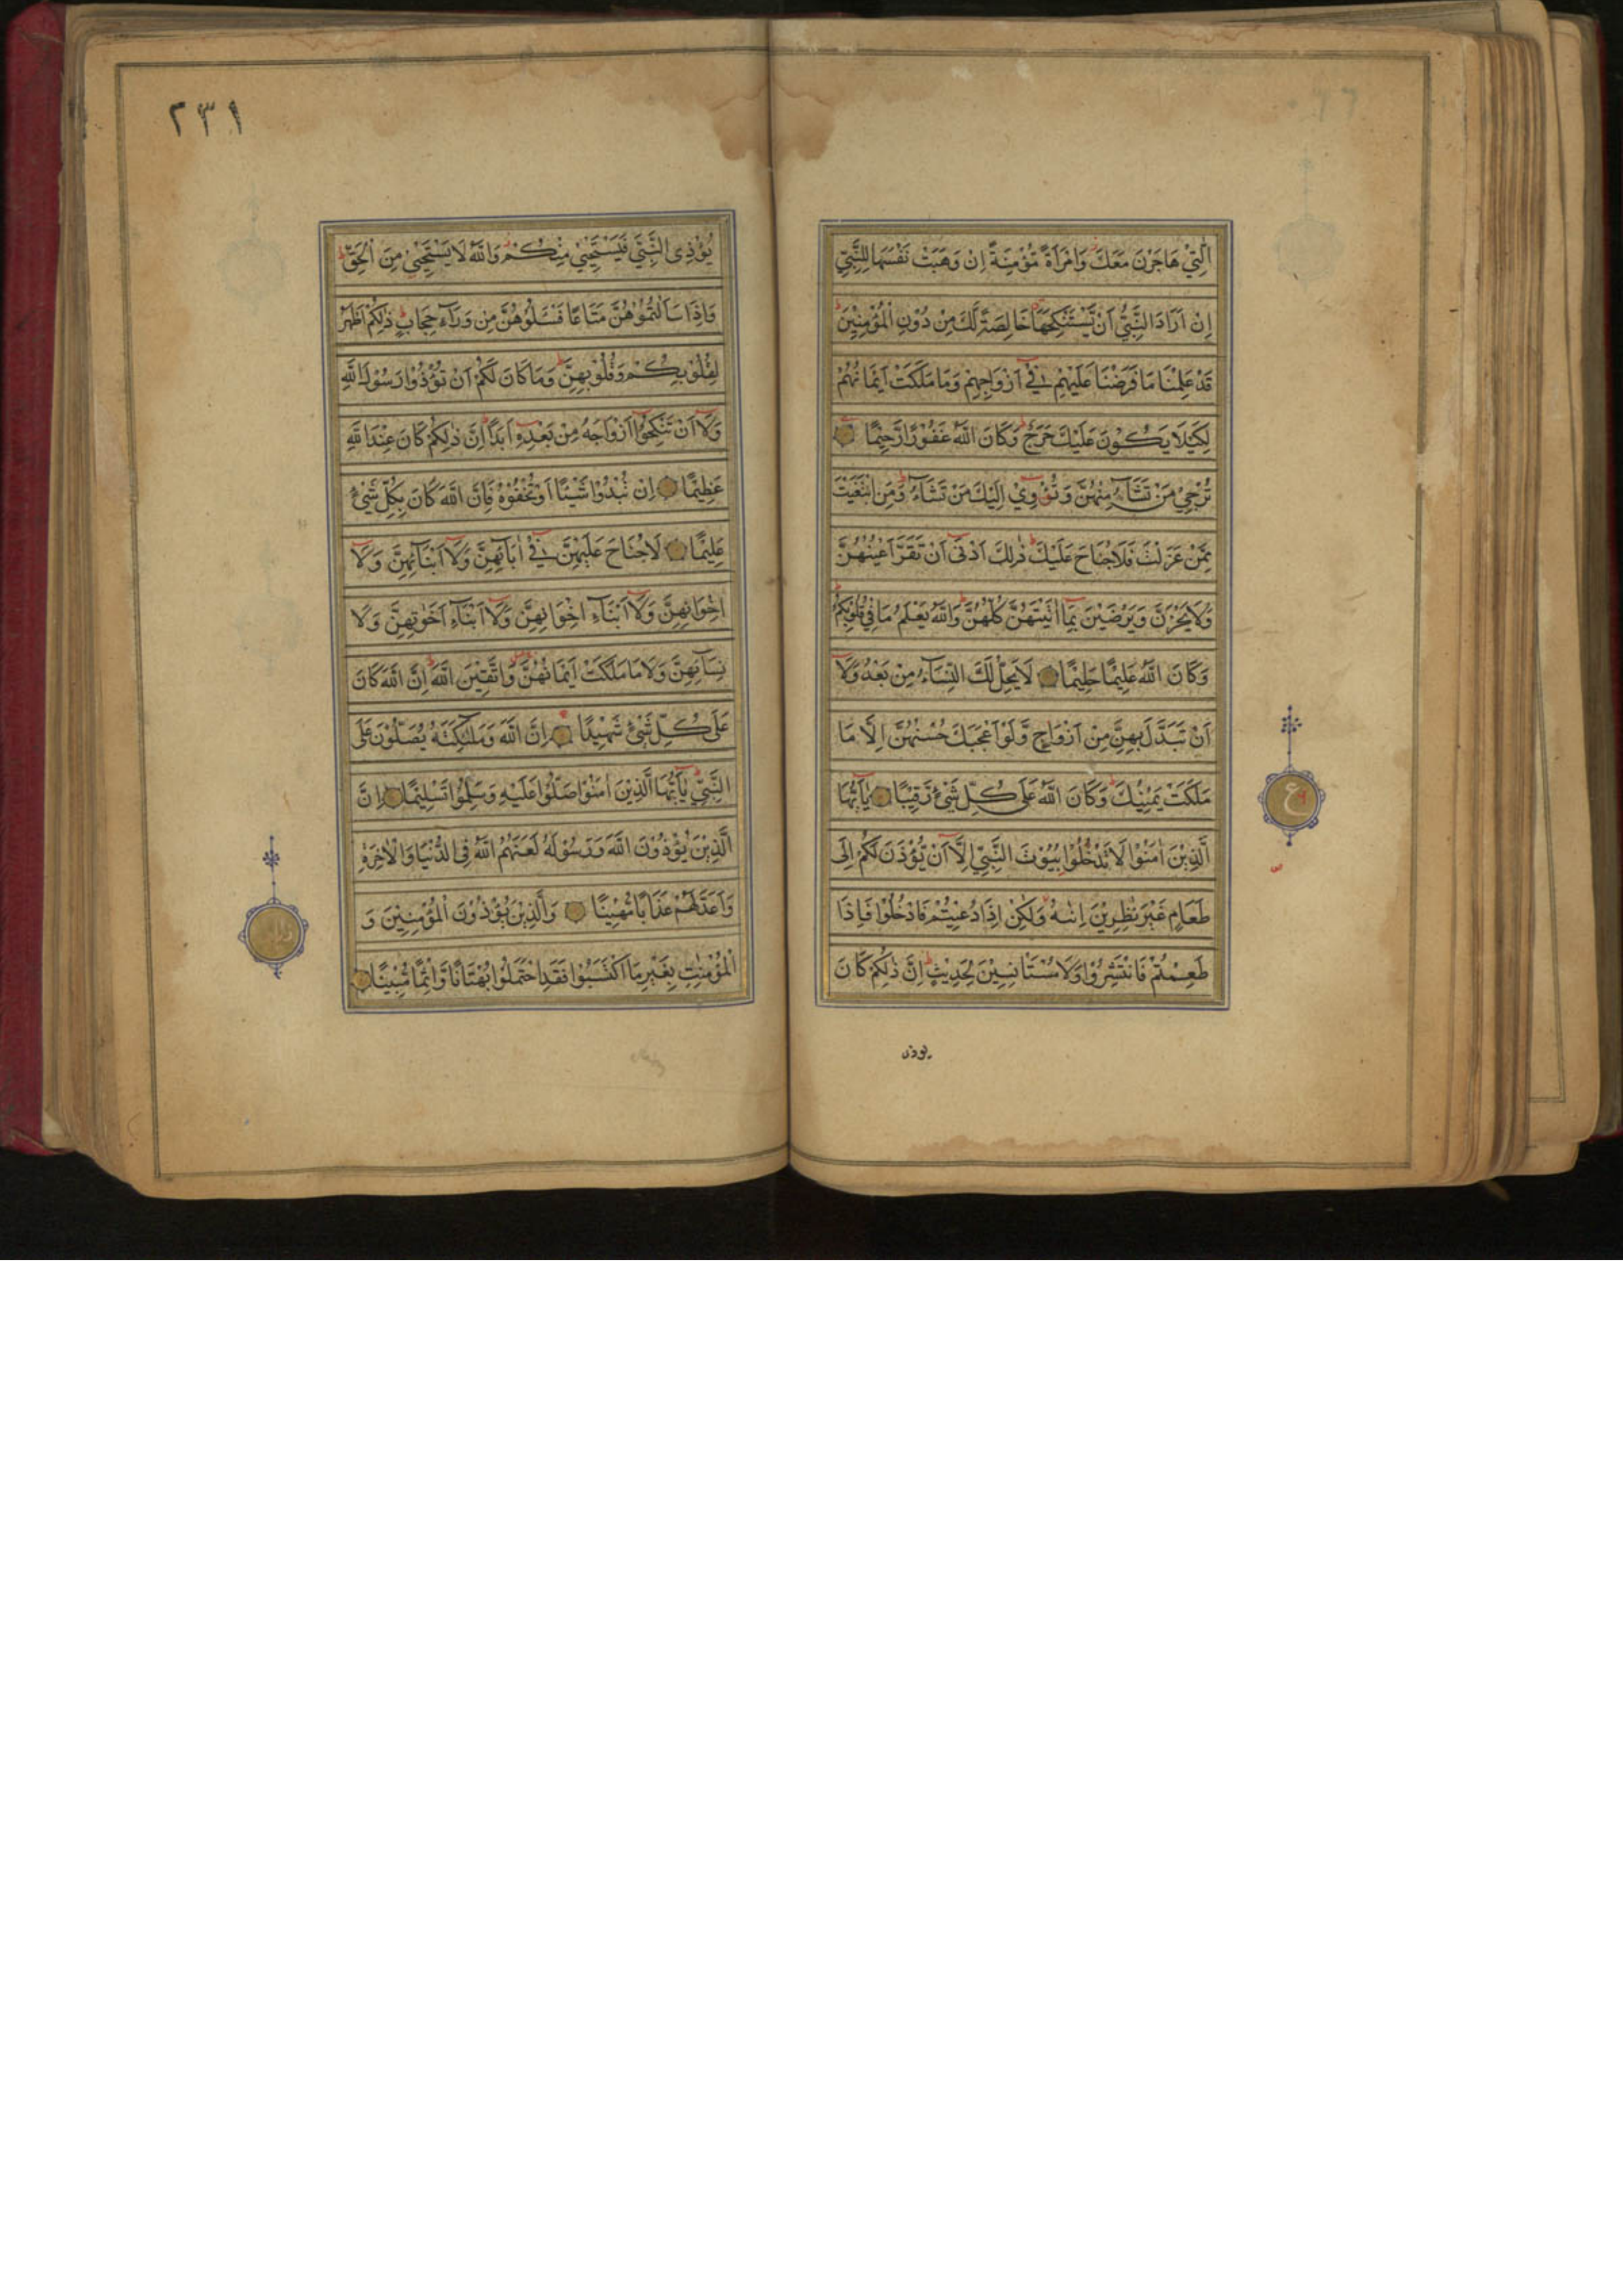 الّٰتِيْ هَاجَرْنَ مَعَكَ وَامْرَاَةً مُّؤْمِنَةً اِنْ وَهَبَتْ نَفْسَهَا لِلنَّبِيِّ
اِنْ اَرَادَ النَّبِيُّ اَنْ يَّسْتَنْكِحَهَا خَالِصَةً لَّكَ مِنْ دُوْنِ الْمُؤْمِنِيْنَ
قَدْ عَلِمْنَا مَا فَرَضْنَا عَلَيْهِمْ فِيْٓ اَزْوَاجِهِمْ وَمَا مَلَكَتْ اَيْمَانُهُمْ
لِكَيْلَا يَكُوْنَ عَلَيْكَ حَرَجٌ وَكَانَ اللّٰهُ غَفُوْرًا رَّحِيْمًا
تُرْجِيْ مَنْ تَشَآءُ مِنْهُنَّ وَتُؤْوِيْ اِلَيْكَ مَنْ تَشَآءُ وَمَنِ ابْتَغَيْتَ
مِمَّنْ عَزَلْتَ فَلَا جُنَاحَ عَلَيْكَ ذٰلِكَ اَدْنٰٓى اَنْ تَقَرَّ اَعْيُنُهُنَّ
وَلَا يَحْزَنَّ وَيَرْضَيْنَ بِمَآ اٰتَيْتَهُنَّ كُلُّهُنَّ وَاللّٰهُ يَعْلَمُ مَا فِيْ قُلُوْبِكُمْ
وَكَانَ اللّٰهُ عَلِيْمًا حَلِيْمًا لَا يَحِلُّ لَكَ النِّسَآءُ مِنْ بَعْدُ وَلَآ
اَنْ تَبَدَّلَ بِهِنَّ مِنْ اَزْوَاجٍ وَّلَوْ اَعْجَبَكَ حُسْنُهُنَّ اِلَّا مَا
مَلَكَتْ يَمِيْنُكَ وَكَانَ اللّٰهُ عَلٰى كُلِّ شَيْءٍ رَّقِيْبًا يٰٓاَيُّهَا
الَّذِيْنَ اٰمَنُوْا لَا تَدْخُلُوْا بُيُوْتَ النَّبِيِّ اِلَّآ اَنْ يُّؤْذَنَ لَكُمْ اِلٰى
طَعَامٍ غَيْرَ نٰظِرِيْنَ اِنٰىهُ وَلٰكِنْ اِذَا دُعِيْتُمْ فَادْخُلُوْا فَاِذَا
طَعِمْتُمْ فَانْتَشِرُوْا وَلَا مُسْتَاْنِسِيْنَ لِحَدِيْثٍ اِنَّ ذٰلِكُمْ كَانَ
يوذى
ع
٢٣١
يُؤْذِى النَّبِيَّ فَيَسْتَحْيٖ مِنْكُمْ وَاللّٰهُ لَا يَسْتَحْيٖ مِنَ الْحَقِّ
وَاِذَا سَاَلْتُمُوْهُنَّ مَتَاعًا فَسْـَٔلُوْهُنَّ مِنْ وَرَآءِ حِجَابٍ ذٰلِكُمْ اَطْهَرُ
لِقُلُوْبِكُمْ وَقُلُوْبِهِنَّ وَمَا كَانَ لَكُمْ اَنْ تُؤْذُوْا رَسُوْلَ اللّٰهِ
وَلَآ اَنْ تَنْكِحُوْٓا اَزْوَاجَهُ مِنْ بَعْدِهٖٓ اَبَدًا اِنَّ ذٰلِكُمْ كَانَ عِنْدَ اللّٰهِ
عَظِيْمًا اِنْ تُبْدُوْا شَيْـًٔا اَوْ تُخْفُوْهُ فَاِنَّ اللّٰهَ كَانَ بِكُلِّ شَيْءٍ
عَلِيْمًا لَا جُنَاحَ عَلَيْهِنَّ فِيْٓ اٰبَآئِهِنَّ وَلَآ اَبْنَآئِهِنَّ وَلَآ
اِخْوَانِهِنَّ وَلَآ اَبْنَآءِ اِخْوَانِهِنَّ وَلَآ اَبْنَآءِ اَخَوٰتِهِنَّ وَلَا
نِسَآئِهِنَّ وَلَا مَا مَلَكَتْ اَيْمَانُهُنَّ وَاتَّقِيْنَ اللّٰهَ اِنَّ اللّٰهَ كَانَ
عَلٰى كُلِّ شَيْءٍ شَهِيْدًا اِنَّ اللّٰهَ وَمَلٰٓئِكَتَهٗ يُصَلُّوْنَ عَلَى
النَّبِيِّ يٰٓاَيُّهَا الَّذِيْنَ اٰمَنُوْا صَلُّوْا عَلَيْهِ وَسَلِّمُوْا تَسْلِيْمًا اِنَّ
الَّذِيْنَ يُؤْذُوْنَ اللّٰهَ وَرَسُوْلَهٗ لَعَنَهُمُ اللّٰهُ فِى الدُّنْيَا وَالْاٰخِرَةِ
وَاَعَدَّ لَهُمْ عَذَابًا مُّهِيْنًا وَالَّذِيْنَ يُؤْذُوْنَ الْمُؤْمِنِيْنَ وَ
الْمُؤْمِنٰتِ بِغَيْرِ مَا اكْتَسَبُوْا فَقَدِ احْتَمَلُوْا بُهْتَانًا وَّاِثْمًا مُّبِيْنًا